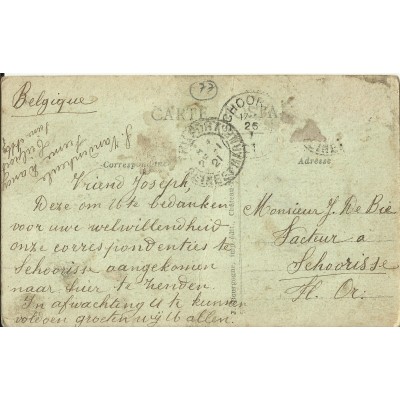 77
Belgique
CARTE
Correspondance
Adresse
SCHOOR
26
21
Vriend Joseph,
Deze om U te bedanken
voor uwe welwillendheid
onze correspondenties te
Schoorisse aangekomen
naar hier te zenden.
In afwachting U te kunnen
voldoen groeten wij U allen.
Monsieur J. De Bie
Facteur a
Schoorisse
Fl. Or.